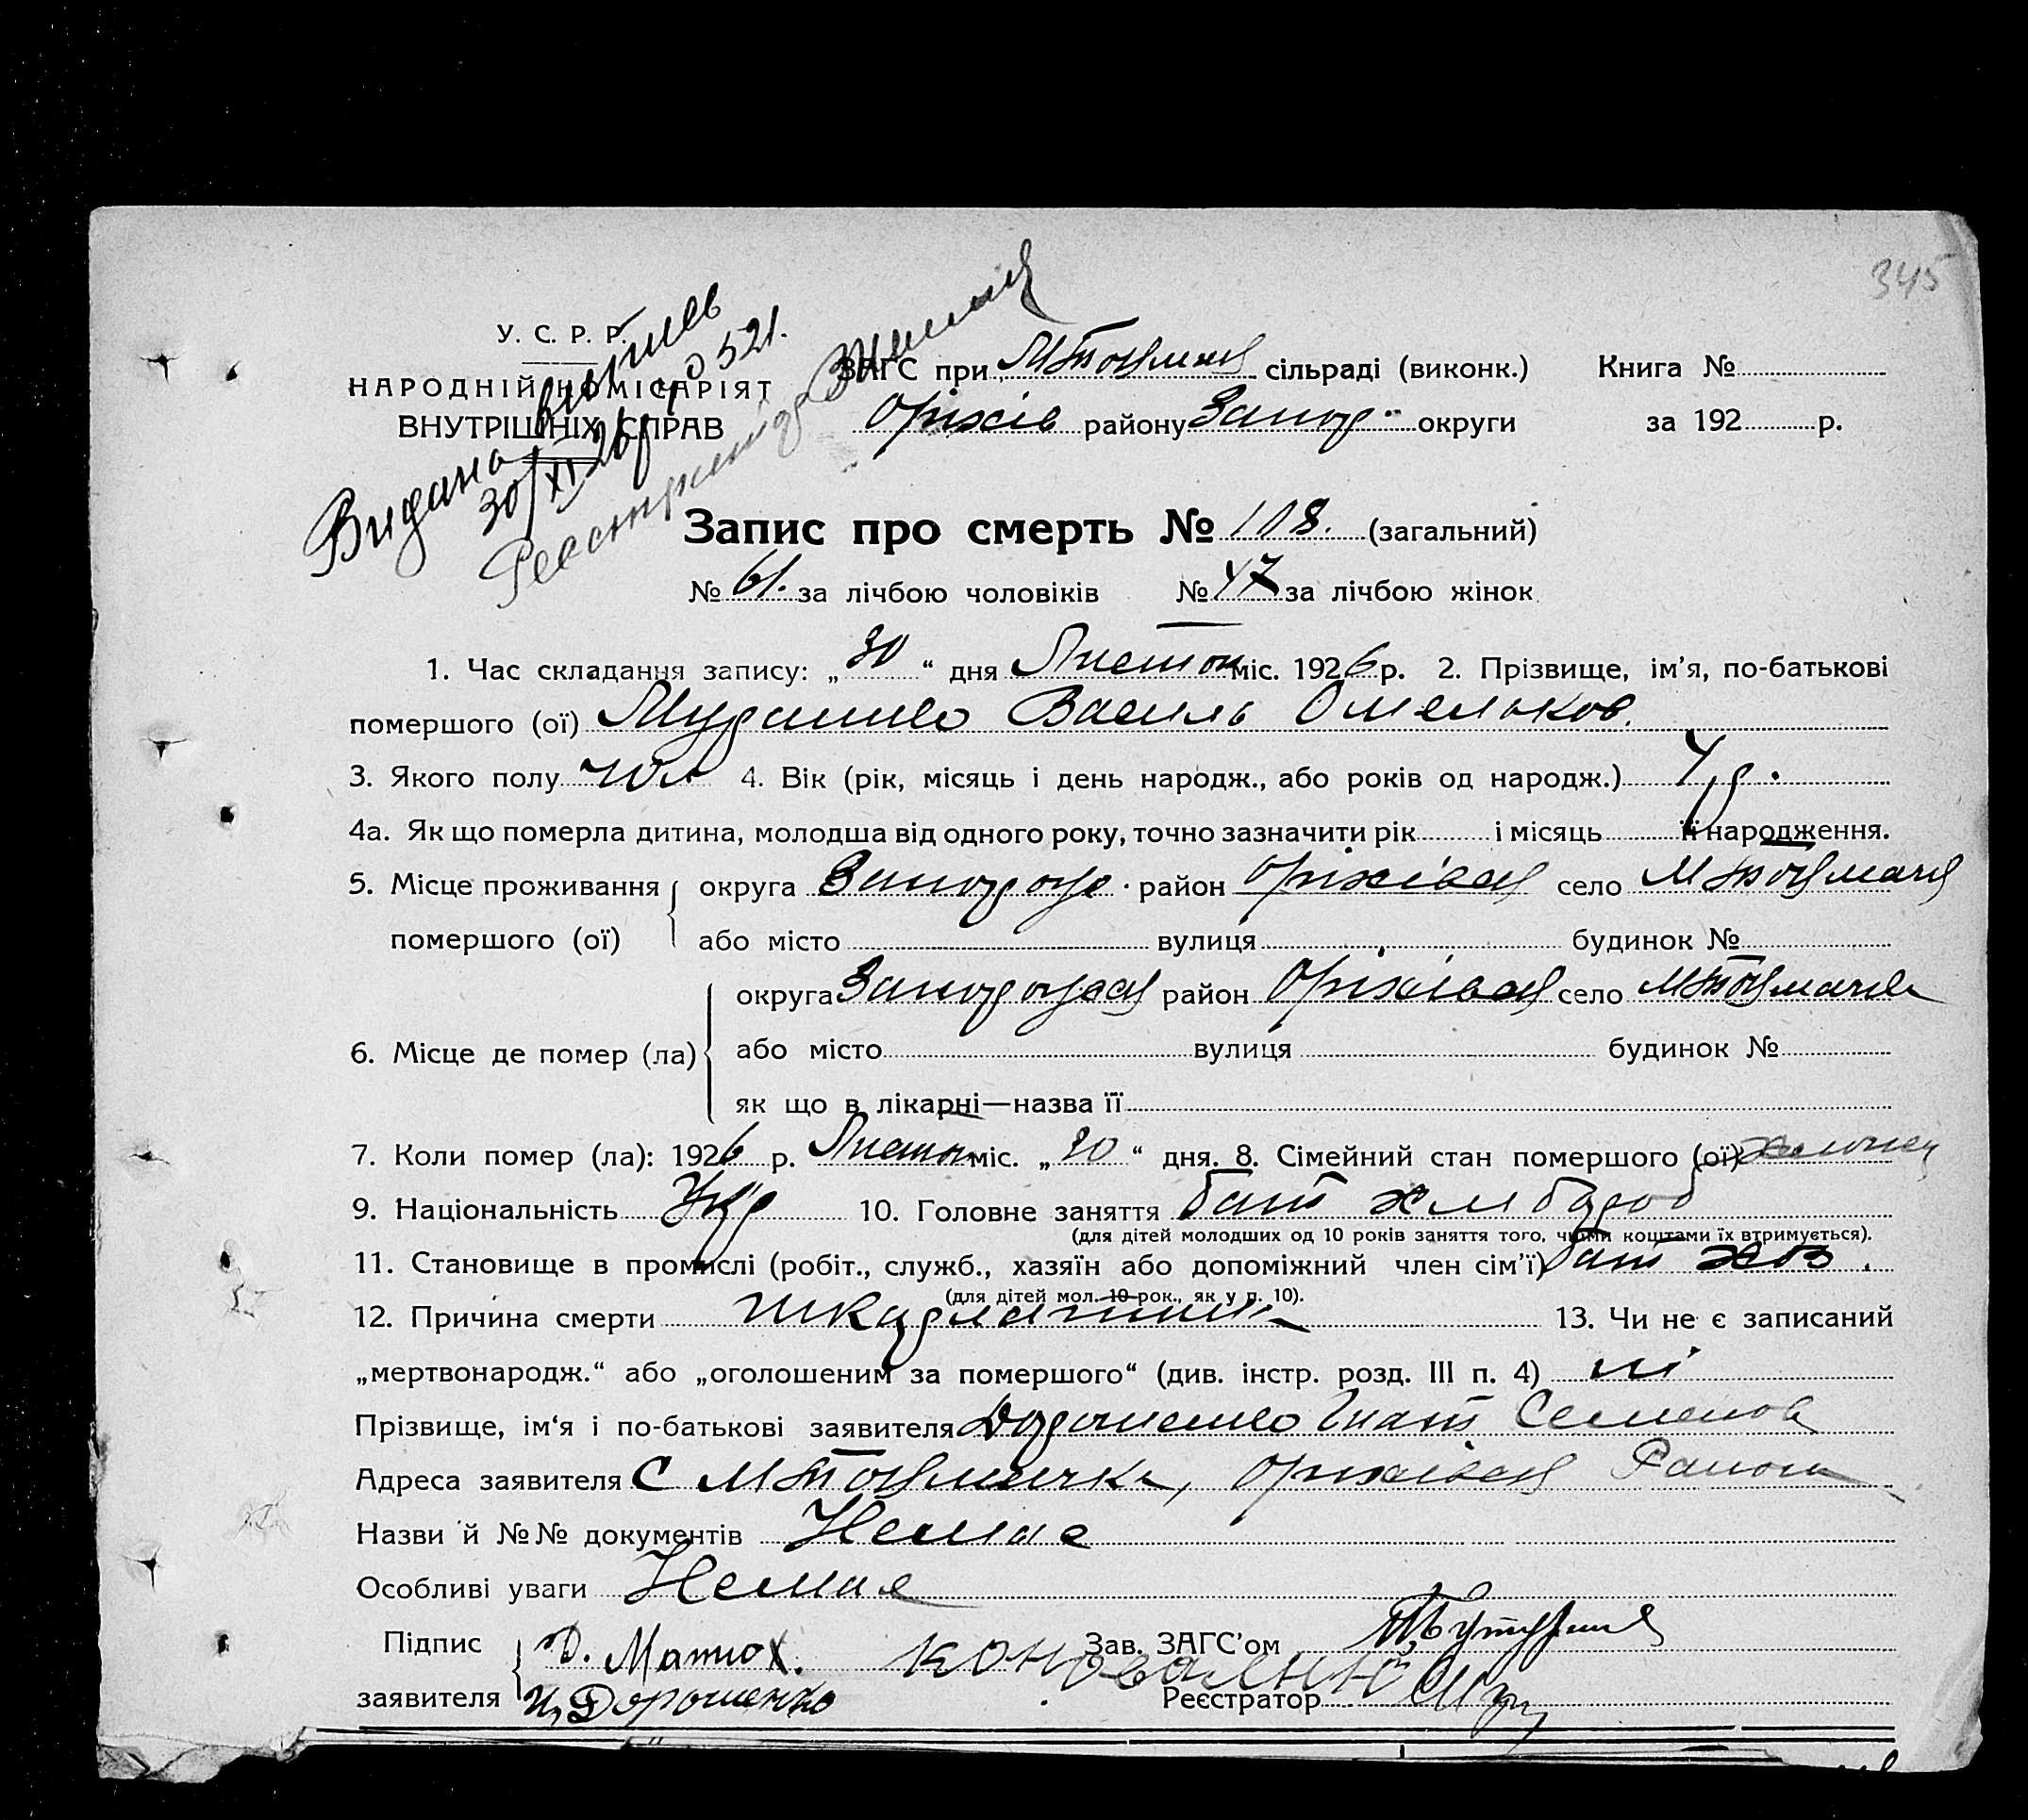 345
У. С. Р. Р.
НАРОДНІЙ КОМІСАРІЯТ
ВНУТРІШНІХ СПРАВ
Видана
30/XI 26 р. 521.
ЗАГС при М Токмач сільраді (виконк.) Книга №
Оріхів району Запор. округи за 192 р.
Запис про смерть № 108. (загальний)
№ 61. за лічбою чоловіків № 47 за лічбою жінок
1. Час складання запису: „30“ дня Листоп міс. 1926 р. 2. Прізвище, ім’я, по-батькові
помершого (ої) Василь Омельков.
3. Якого полу чол 4. Вік (рік, місяць і день народж., або років од народж.) 4 р.
4а. Як що померла дитина, молодша від одного року, точно зазначити рік і місяць її народження.
5. Місце проживання округа район Оріхівськ село М Токмач
помершого (ої) або місто вулиця будинок №
округа район Оріхівськ село М Токмачка
6. Місце де помер (ла) або місто вулиця будинок №
як що в лікарні—назва її
7. Коли помер (ла): 1926 р. Листоп міс. „30“ дня. 8. Сімейний стан помершого (ої)
9. Національність Укр 10. Головне заняття бат хлібороб
(для дітей молодших од 10 років заняття того, чиїми коштами їх втримується).
11. Становище в промислі (робіт., служб., хазяїн або допоміжний член сім’ї) бат хоз.
(для дітей мол. 10 рок., як у п. 10).
12. Причина смерти шкарлатина 13. Чи не є записаний
„мертвонародж.“ або „оголошеним за помершого“ (див. інстр. розд. III п. 4) ні
Прізвище, ім‘я і по-батькові заявителя Дорошенко Гнат Семенов
Адреса заявителя С М Токмачка, Оріхівськ Району
Назви й №№ документів Немає
Особливі уваги Немає
Підпис Д. Матюх. Коновалenко Зав. ЗАГС’ом
заявителя Дорошенко Реєстратор